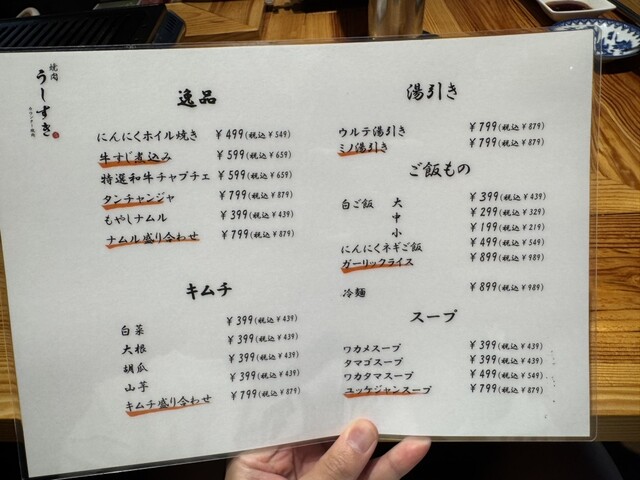 焼肉
うしすき
逸品
にんにくホイル焼き ¥499(税込¥549)
牛すじ煮込み ¥599(税込¥659)
特選和牛チャプチェ ¥599(税込¥659)
タンチャンジャ ¥799(税込¥879)
もやしナムル ¥399(税込¥439)
ナムル盛り合わせ ¥799(税込¥879)
キムチ
白菜 ¥399(税込¥439)
大根 ¥399(税込¥439)
胡瓜 ¥399(税込¥439)
山芋 ¥399(税込¥439)
キムチ盛り合わせ ¥799(税込¥879)
湯引き
ウルテ湯引き ¥799(税込¥879)
ミノ湯引き ¥799(税込¥879)
ご飯もの
白ご飯 大 ¥399(税込¥439)
中 ¥299(税込¥329)
小 ¥199(税込¥219)
にんにくネギご飯 ¥499(税込¥549)
ガーリックライス ¥899(税込¥989)
冷麺 ¥899(税込¥989)
スープ
ワカメスープ ¥399(税込¥439)
タマゴスープ ¥399(税込¥439)
ワカタマスープ ¥499(税込¥549)
ユッケジャンスープ ¥799(税込¥879)